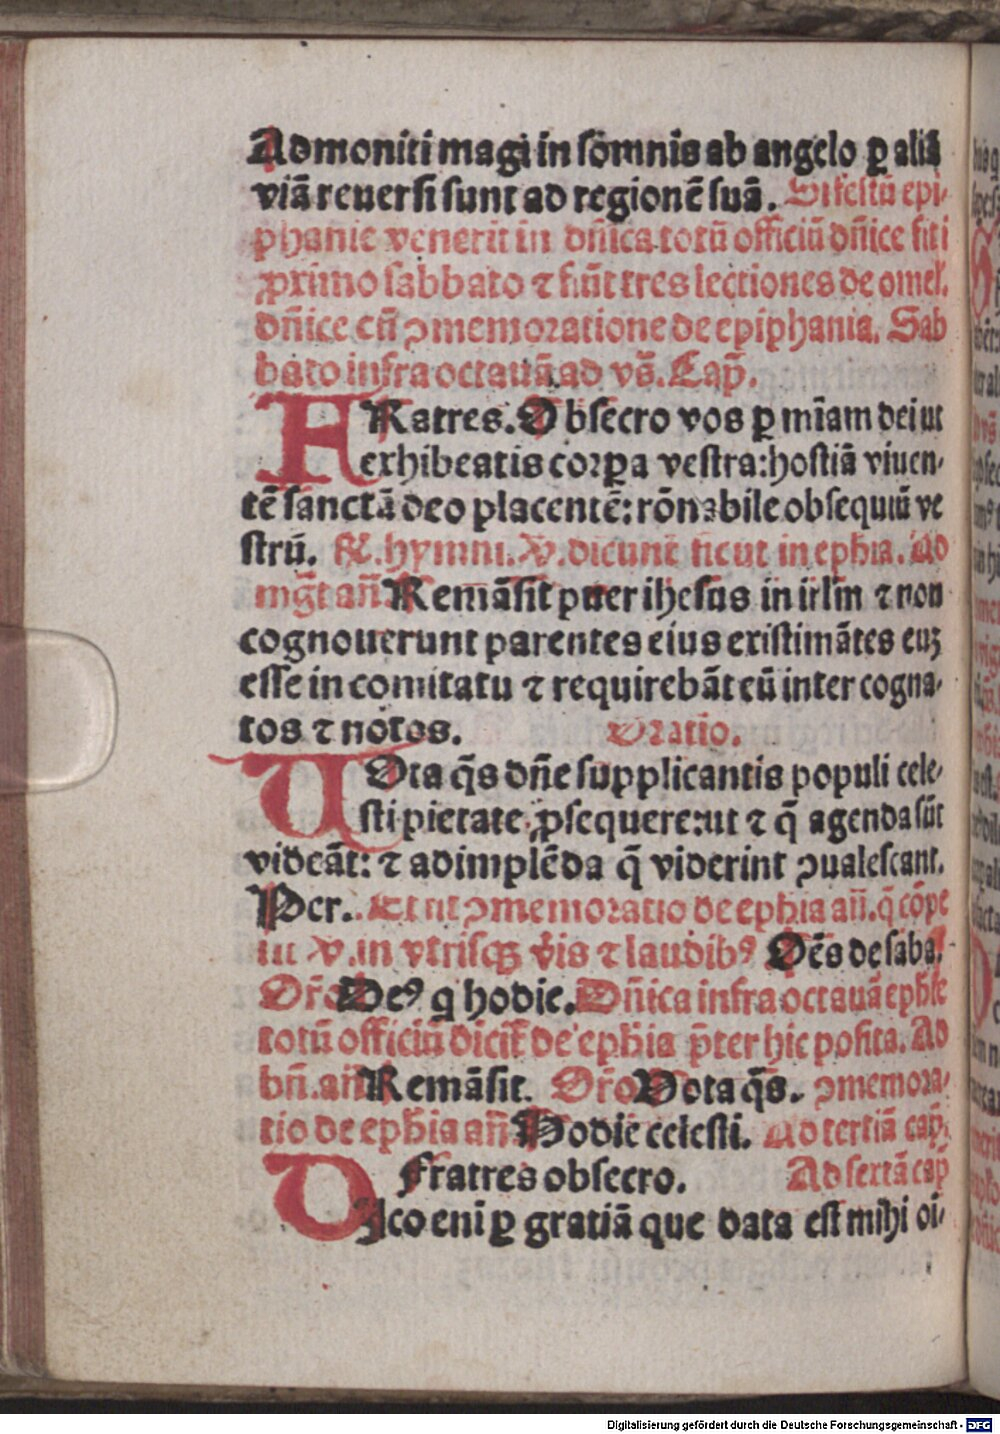 Admoniti magi in sōmnis ab angelo ꝑ aliā
viā reuersi sunt ad regionē suā. Si festū epi-
phanie venerit in dn̄ica totū officiū dn̄ice fiti
ꝓximo sabbato ⁊ fiūt tres lectiones de omel'.
dn̄ice cū ꝯmemoratione de epiphania. Sab
bato infra octauā ad vs̄. Cap̄.
FRatres. Obsecro vos ꝑ mīam dei ut
exhibeatis corꝑa vestra: hostiā viuen-
tē sanctā deo placentē: rōnabile obsequiū ve
strū. ꝶ. hymni. ℣. dicunt̄ sicut in eph̄ia. Ad
mḡt an̄. Remāsit puer ihesus in irl̄m ⁊ non
cognouerunt parentes eius existimātes euꝫ
esse in comitatu ⁊ requirebāt eū inter cogna-
tos ⁊ notos. Oratio.
VOta q̄s dn̄e supplicantis populi cele-
sti pietate ꝓsequere: ut ⁊ q̄ agenda sūt
videāt: ⁊ adimplēda q̄ viderint ꝯualescant.
Per. Et fit ꝯmemoratio de eph̄ia an̄. q̄ cōpe
tit ℣. in vtrisqꝫ v̄is ⁊ laudibꝰ Om̄s de saba.
Or̄o Deꝰ q hodie. Dn̄ica infra octauā eph̄ie
totū officiū dicit̄ de eph̄ia p̄ter hic posita. Ad
bn̄. an̄ Remāsit. Or̄o Vota q̄s. ꝯmemora-
tio de eph̄ia an̄ Hodie celesti. Ad tertiā cap̄.
Fratres obsecro. Ad sextā cap̄
DIco eni ꝑ gratiā que data est mihi oī-
Digitalisierung gefördert durch die Deutsche Forschungsgemeinschaft - DFG